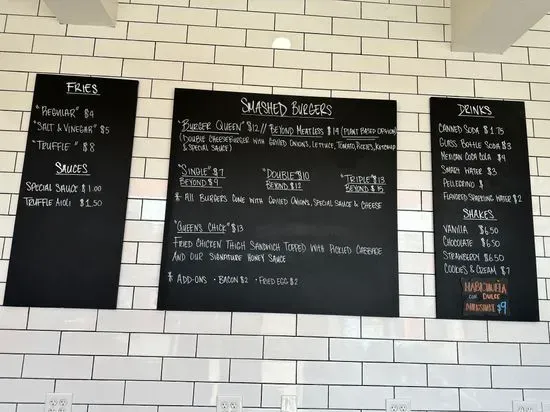 FRIES
"REGULAR" $4
"SALT & VINEGAR" $5
"TRUFFLE" $8
SAUCES
SPECIAL SAUCE $1.00
TRUFFLE AIOLI $1.50
SMASHED BURGERS
"BURGER QUEEN" $12 // BEYOND MEATLESS $14 (PLANT BASED OPTION)
(DOUBLE CHEESEBURGER WITH GRILLED ONIONS, LETTUCE, TOMATO, PICKLES, KETCHUP
& SPECIAL SAUCE)
"SINGLE" $7 "DOUBLE" $10 "TRIPLE" $13
BEYOND $9 BEYOND $12 BEYOND $15
* ALL BURGERS COME WITH GRILLED ONIONS, SPECIAL SAUCE & CHEESE
"QUEENS CHICK" $13
FRIED CHICKEN THIGH SANDWICH TOPPED WITH PICKLED CABBAGE
AND OUR SIGNATURE HONEY SAUCE
* ADD-ONS · BACON $2 · FRIED EGG $2
DRINKS
CANNED SODA $1.75
GLASS BOTTLE SODA $3
MEXICAN COCA COLA $4
SMART WATER $3
PELLEGRINO $
FLAVORED SPARKLING WATER $2
SHAKES
VANILLA $6.50
CHOCOLATE $6.50
STRAWBERRY $6.50
COOKIES & CREAM $7
HABICHUELA
CON DULCE
$9